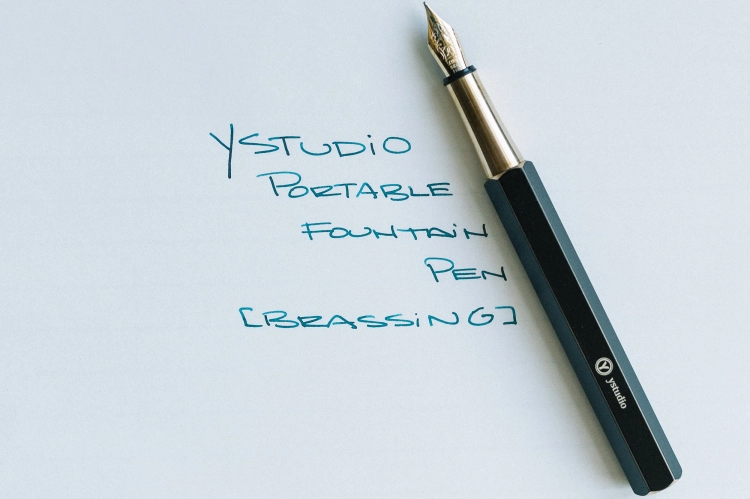 YSTUDiO
PORTABLE
FOUNTAiN
PEN
[BRASSiNG]
ystudio